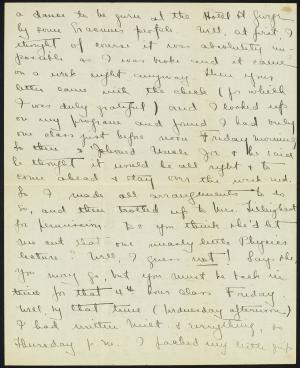 a dance to be given at the Hotel St. George
by some Syracuse people. Well, at first, I
thought of course it was absolutely im-
possible as I was broke and it came
on a week night anyway. Then your
letter came with the check (for which
I was duly grateful) and I looked up
on my programe and found I had only
one class just before noon Friday morning.
So then I 'phoned Uncle Joe & he said
he thought it would be all right & to
come ahead & stay over the week-end.
So I made all arrangements to do
so, and then trotted up to Mrs.
for permission. Do you think she'd let
me cut that one measly little Physics
lecture? Well, I guess not! Says she,
You may go, but you must be back in
time for that 4th hour class Friday.
Well, by that time (Wednesday afternoon)
I had written Milt. & everything, so
Thursday p.m. I packed my little grip